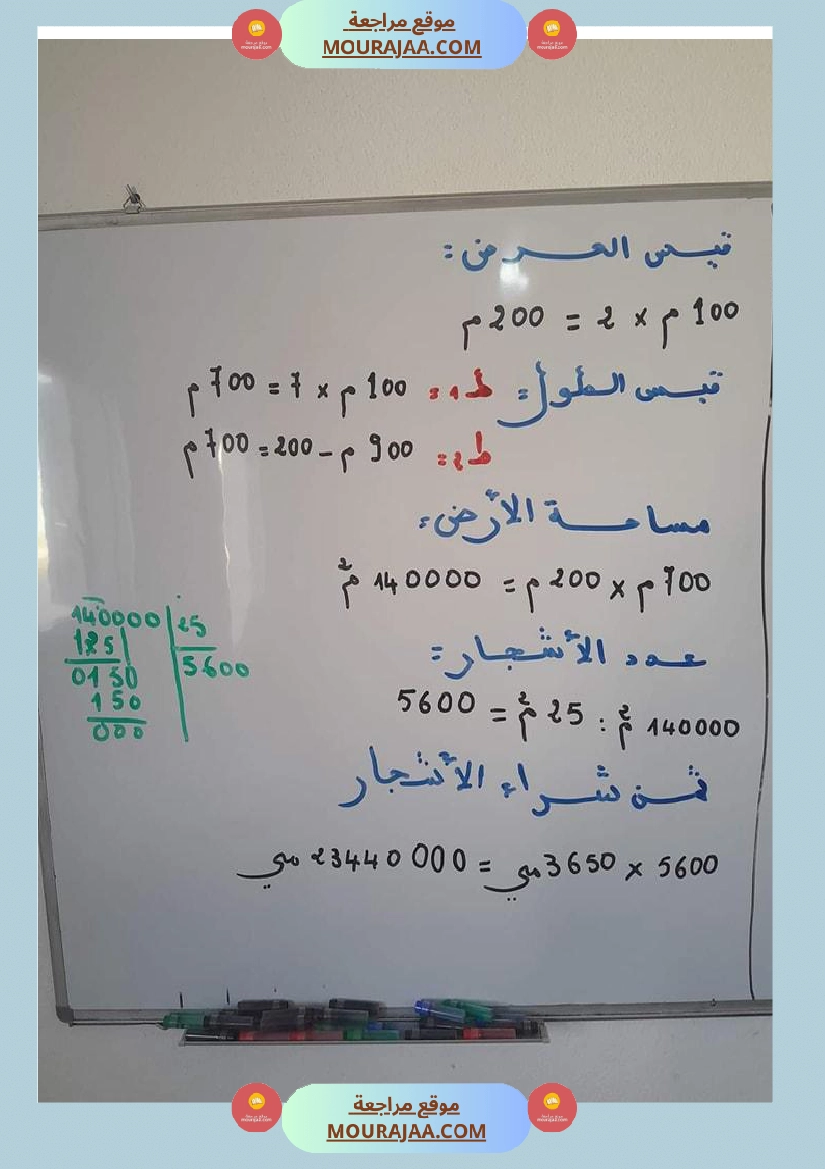 موقع مراجعة
MOURAJAA.COM
قيس العرض:
100 م × 2 = 200 م
قيس الطول: ط1: 100 م × 7 = 700 م
ط2: 900 م - 200 = 700 م
مساحة الأرض:
700 م × 200 م = 140000 م²
عدد الأشجار:
140000 م² : 25 م² = 5600
140000 | 25
125 | 5600
0150
150
000
ثمن شراء الأشجار
5600 × 3650 مي = 23440000 مي
موقع مراجعة
MOURAJAA.COM